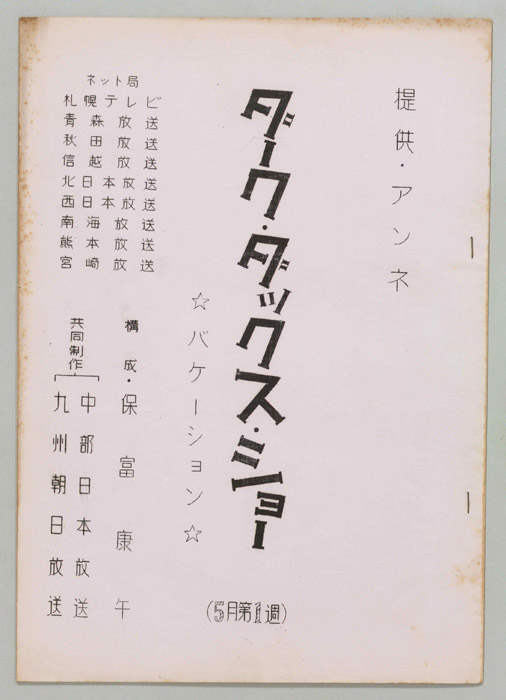 提供・アンネ
ダーク・ダックス・ショー
(5月第1週)
☆バケーション☆
構成・保富康午
共同制作
中部日本放送
九州朝日放送
ネット局
札幌テレビ
青森放送
秋田放送
信越放送
北日本放送
西日本放送
南海放送
熊本放送
宮崎放送